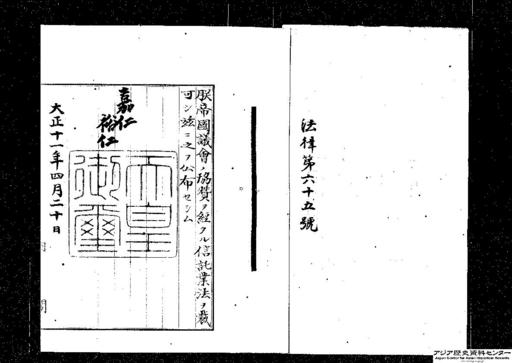 法律第六十五號
朕帝國議會ノ協贊ヲ經タル信託業法ヲ裁
可シ茲ニ之ヲ公布セシム
嘉仁
裕仁
天皇御璽
大正十一年四月二十日
内閣
アジア歴史資料センター
Japan Center for Asian Historical Records